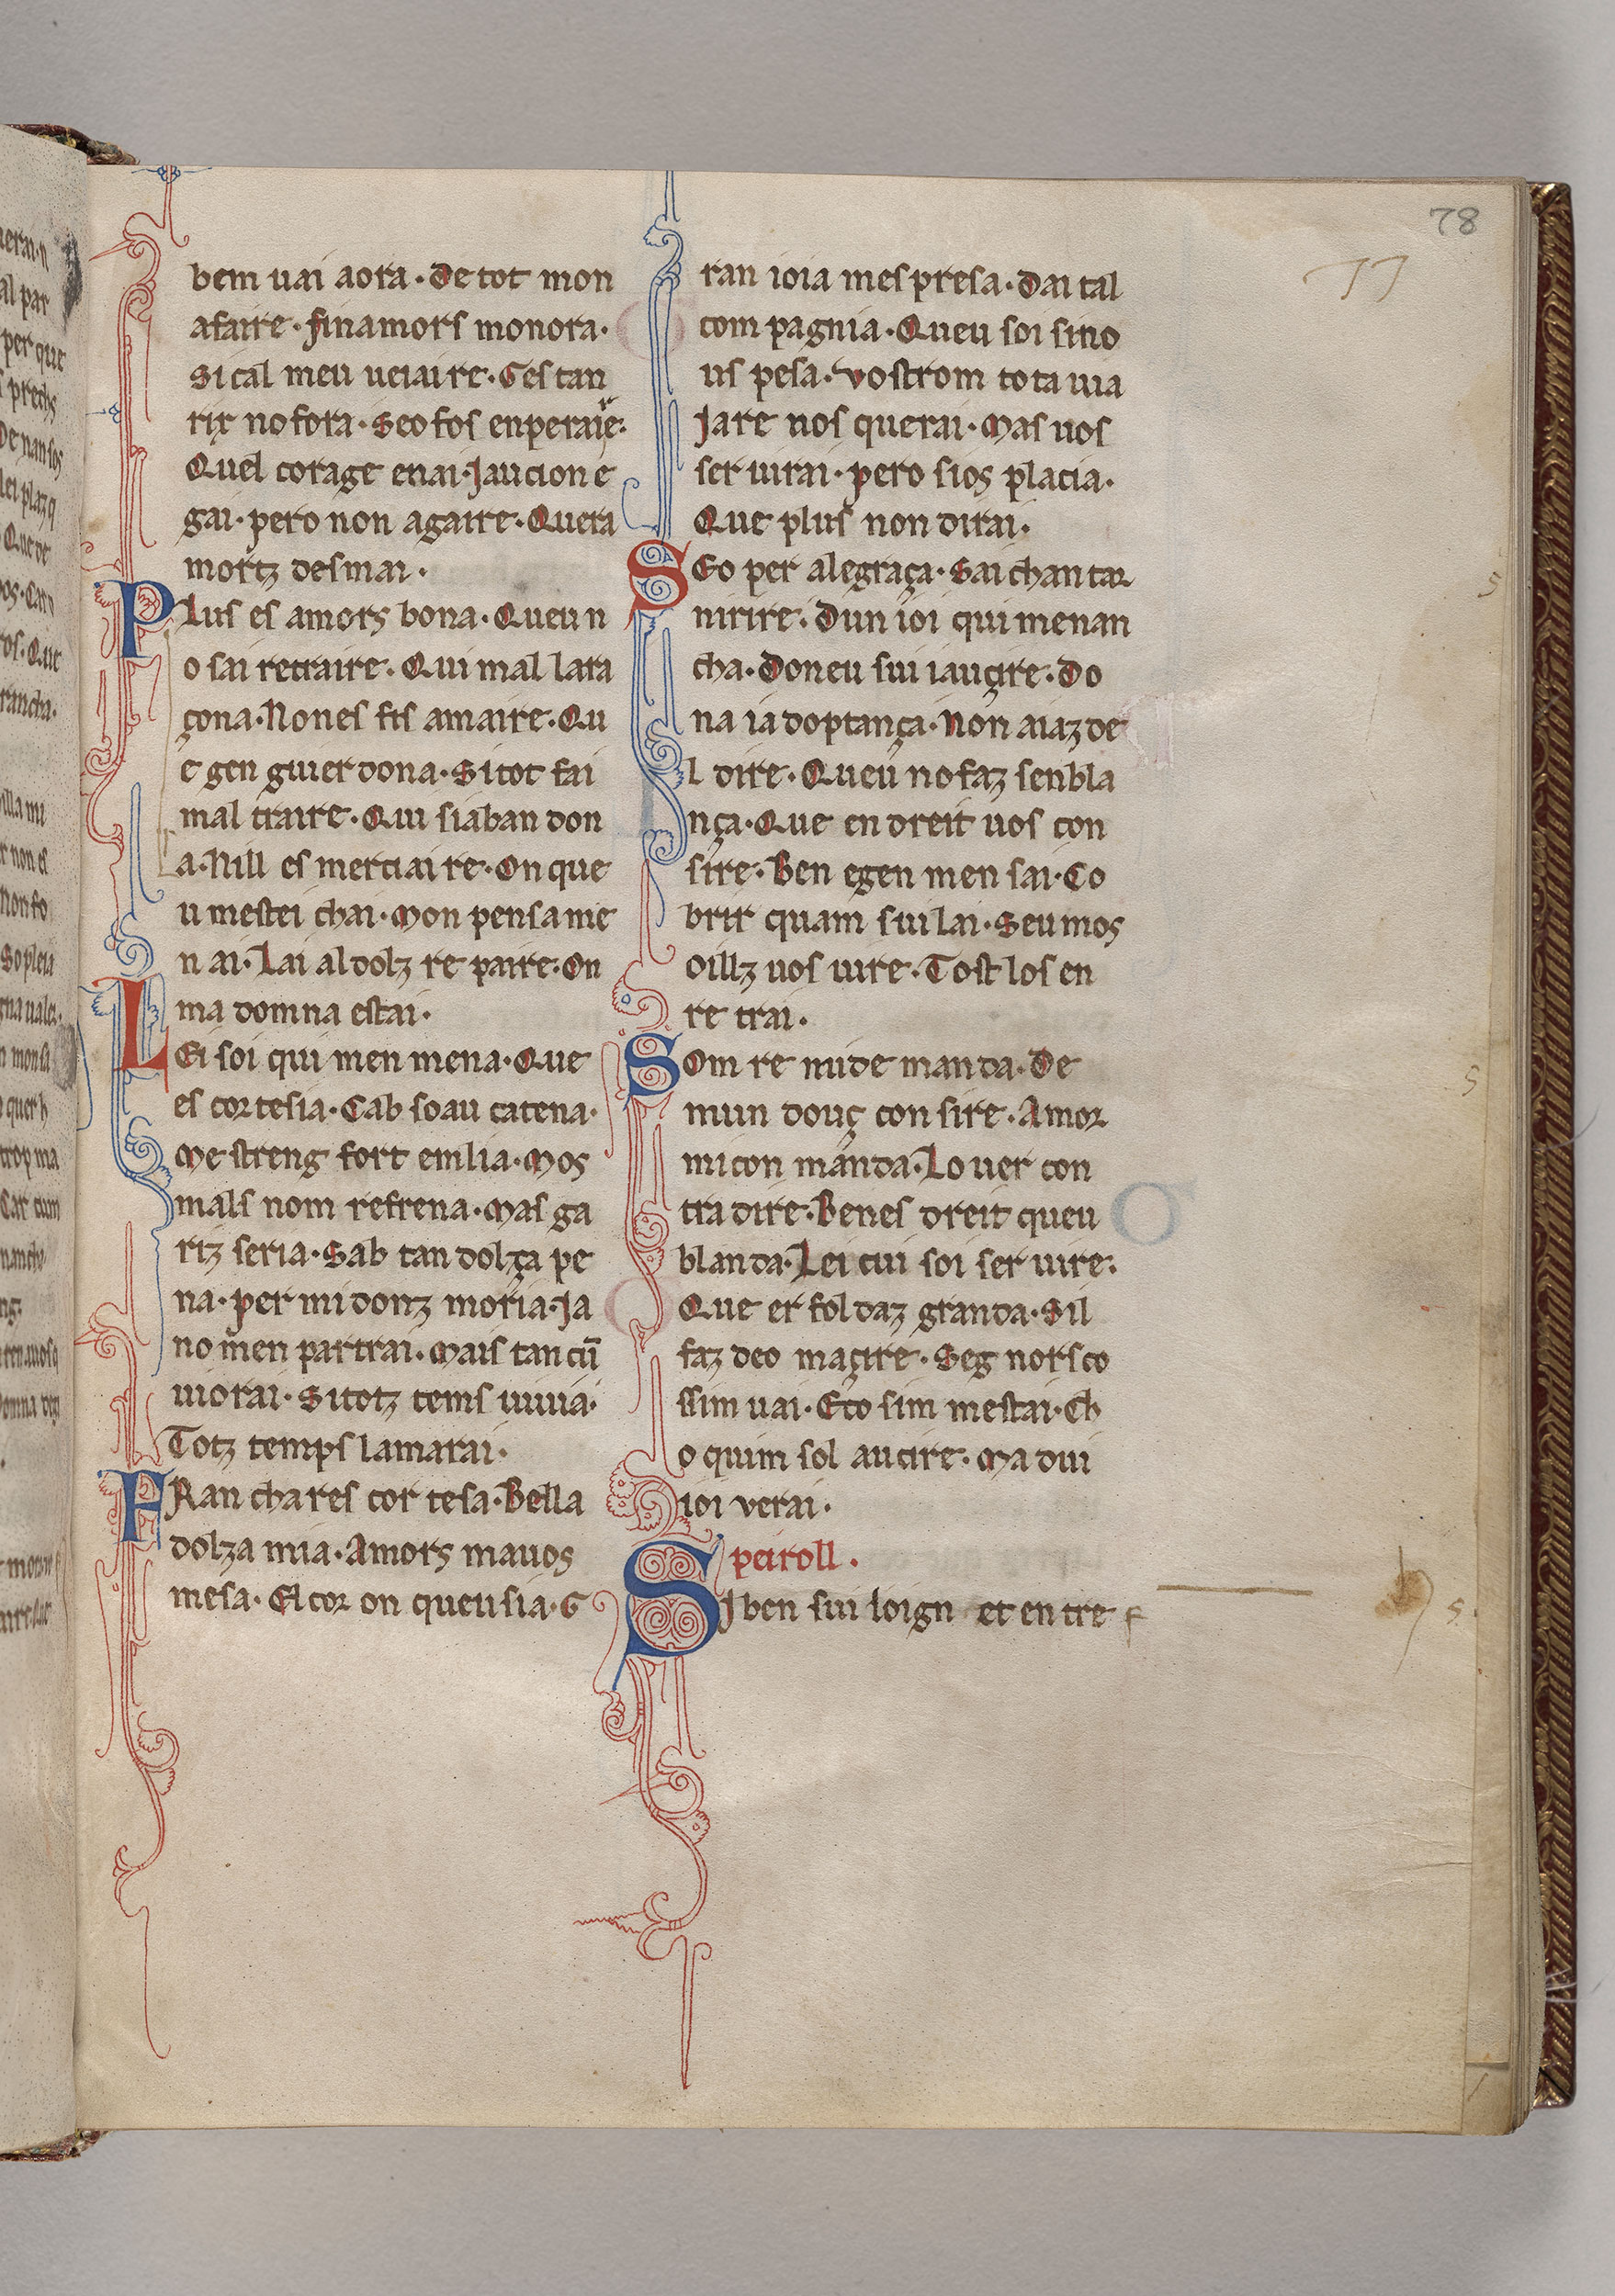 78
77
bem uai aora · De tot mon
afaire · finamors monora ·
Si cal meu ueiaire · Ges tan
rix no fora · Seo fos enperair̄e ·
Quel corage enai · Jaucion e
gai · pero non agaire · Quera
mortz desmai ·
PLus es amors bona · Queu n
o sai retraire · Qui mal lara
çona · Nones fis amaire · Qu
e gen guierdona · Si tot fai
mal traire · Qui siaban don
a · Nill es merciaire · On que
u mestei chai · Mon pensame
n ai · Lai al dolz re paire · On
ma domna estai ·
LEi soi qui men mena · Que
es cortesia · Cab soau catena ·
Me streng fort emlia · Mos
mals nom refrena · Mas ga
riz seria · Sab tan dolça pe
na · per midonz moria · Ja
no men partrai · Mais tan cū
uiorai · Si totz tems uiuia ·
Totz temps lamarai ·
FRan chares cor tesa · Bella
dolza mia · Amors mauos
mesa · El cor on queu sia · G
ran ioia mes presa · Dai tal
com pagnia · Queu soi sino
us pesa · Vostrom tota uia
Jare nos querai · Mas uos
ser uirai · pero sios placia ·
Que plus non dirai ·
SEo per alegraça · Sai chantar
nirire · Dun ioi qui menan
cha · Doneu sui iauçire · Do
na ia doptança · Non aiaz de
l dire · Queu no faz senbla
nça · Que en dreit uos con
sire · Ben egen men sai · Co
brir quam sui lai · Seu mos
oillz uos uire · Tost los en
re trai ·
SOm re mide manda · De
mun douç con sire · Amor
mi con manda · Lo uer con
tra dire · Benes dreit queu
blanda · Lei cui soi ser uire ·
Que er fol daz granda · Sil
faz deo maçire · Seg nors co
ssim uai · Eco sim mestai · Ch
o quim sol aucire · Ma dui
ioi verai ·
peiroll ·
SJ ben sui loign et en tre